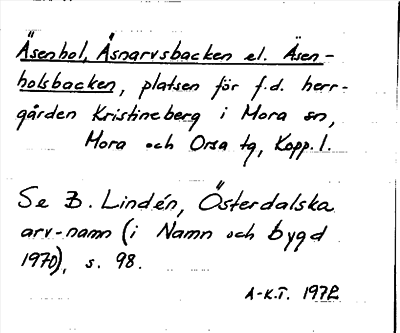 Äsenhol, Åsnarvsbacken el. Äsen-
holsbacken, platsen för f.d. herr-
gården Kristineberg i Mora sn,
Mora och Orsa tg, Kopp. l.
Se B. Lindén, Österdalska
arv-namn (i Namn och bygd
1970), s. 98.
A-K.T. 1972